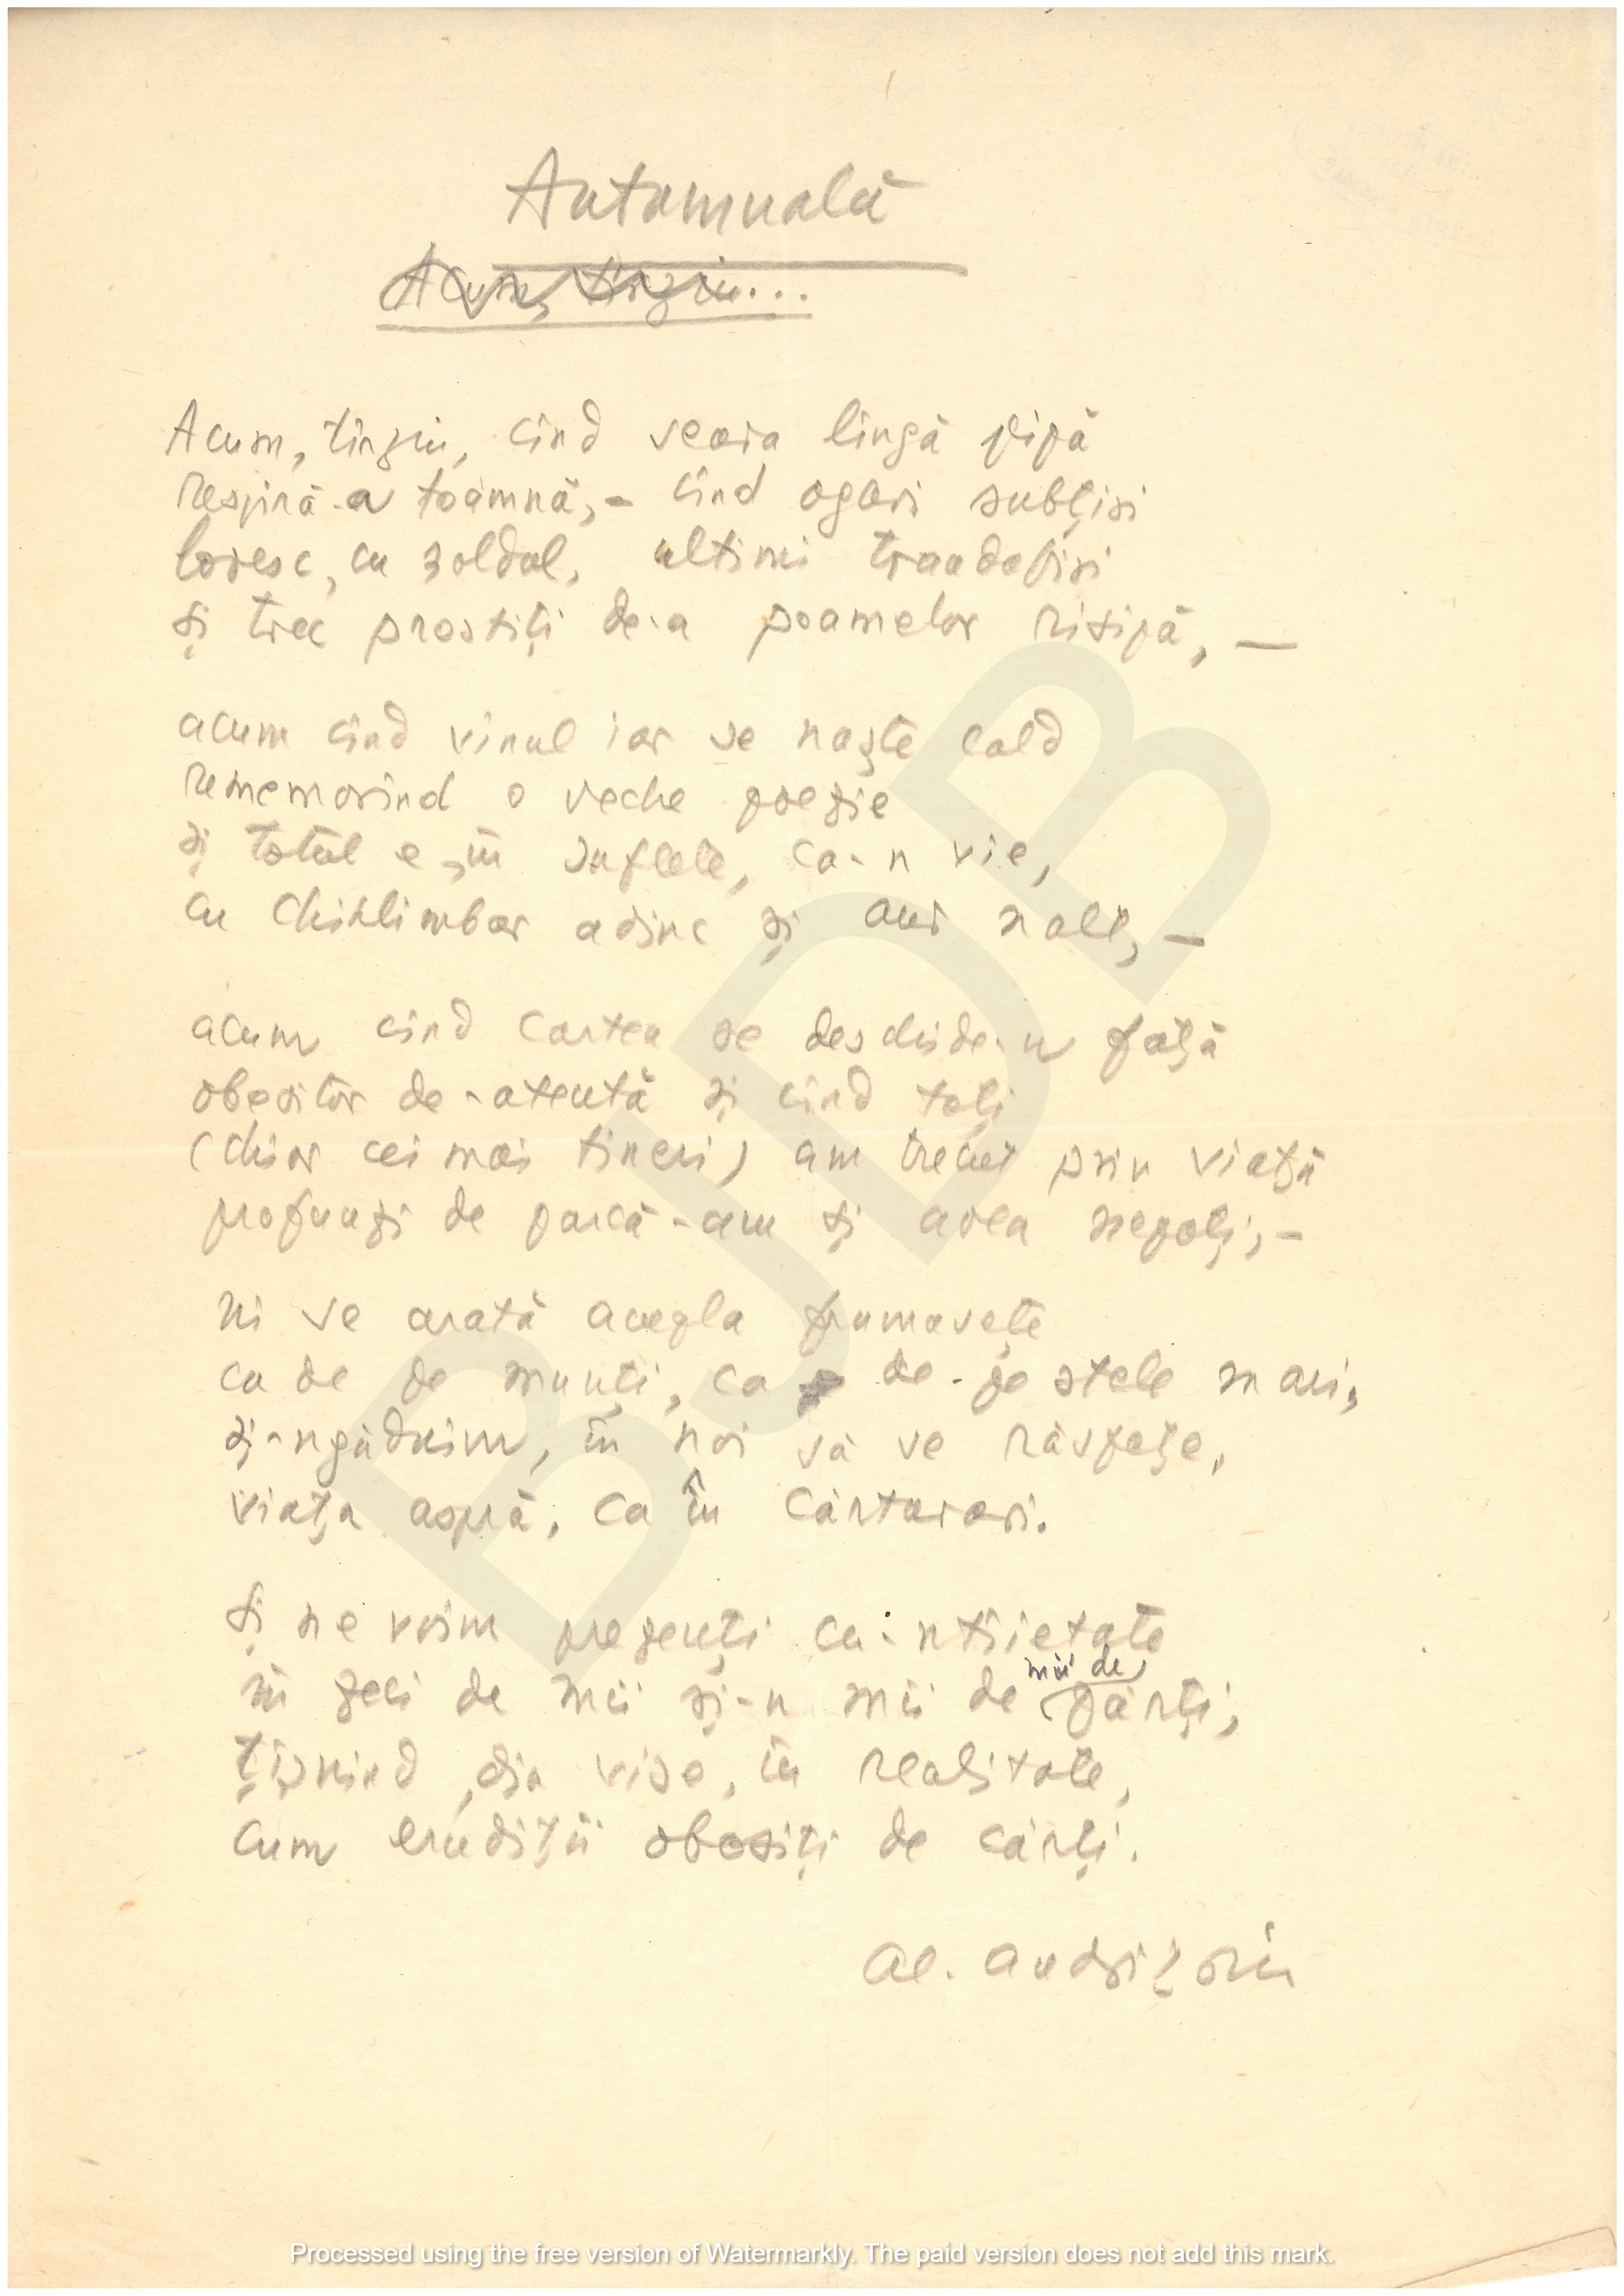 Automnală
Acum, tîrziu...
Acum, tîrziu, cînd seara lîngă pipă
respiră-a toamnă,- cînd ogari subțiri
lovesc, cu șoldul, ultimii trandafiri
și trec prostiți de-a poamelor risipă, —
acum cînd vinul iar se naște cald
rememorînd o veche poezie
și totul e, în suflete, ca-n vie,
cu chihlimbar adînc și aur nalt, —
acum cînd cartea se deschide-n față
obositor de-atentă și cînd toți
(chiar cei mai tineri) am trecut prin viață
profunzi de parcă-am și avea nepoți,-
ni se arată aceepla frumusețe
ca de pe munți, ca de-pe stele mari,
și-ngăduim, în noi să se răsfețe,
viața aspră, ca în cărturari.
Și ne voim prezenți ca-ntîietate
în zeci de mii și-n mii de mii de părți,
țîșnind, din vise, în realitate,
cum erudiții obosiți de cărți.
Al. Andrițoiu
BJDB
Processed using the free version of Watermarkly. The paid version does not add this mark.